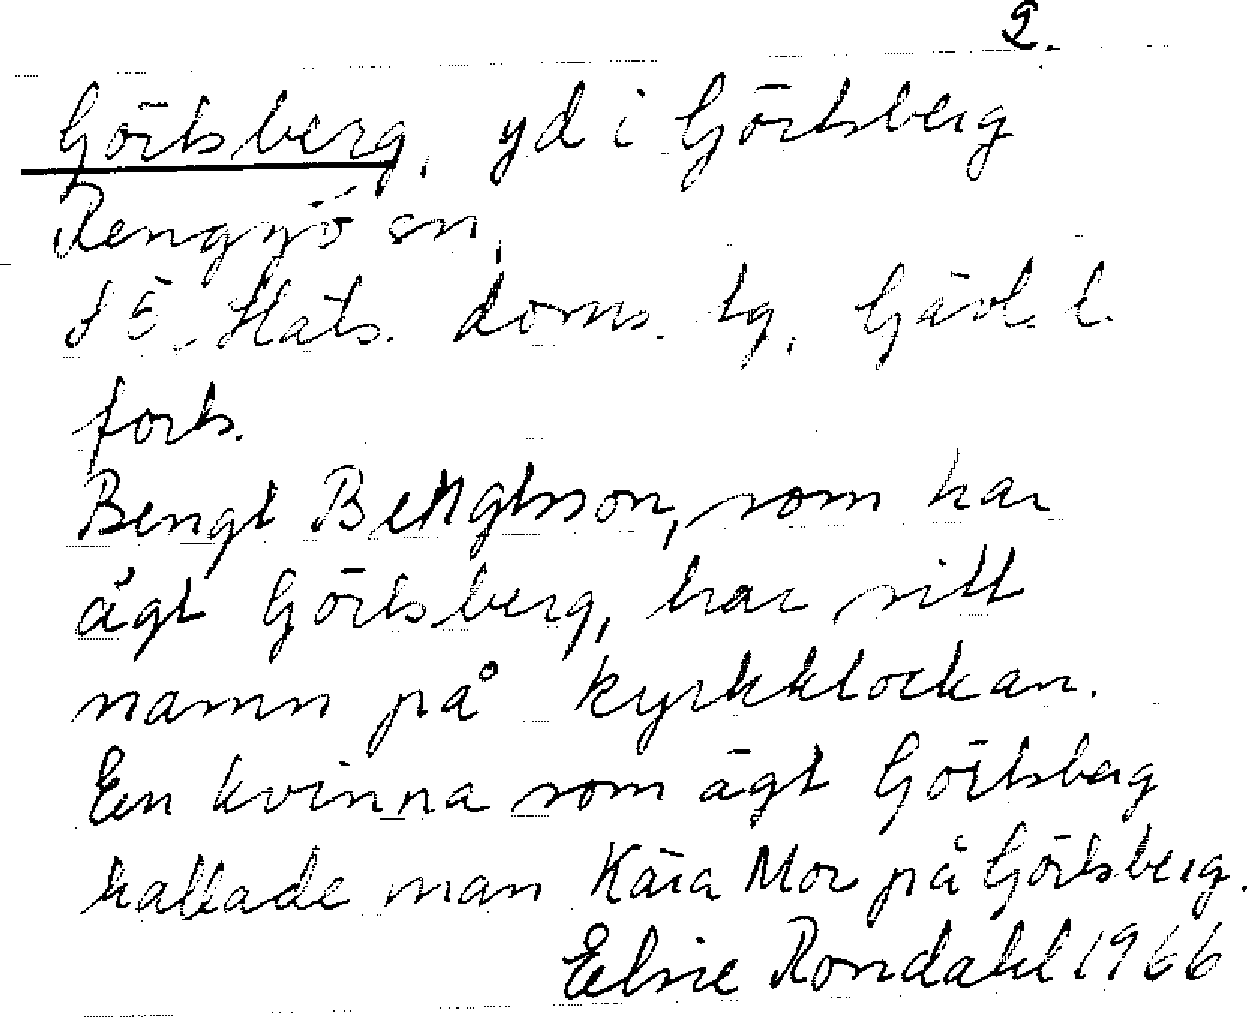 2.
Görtsberg, yd i Görtsberg
Rengsjö sn,
SÖ. Häls. doms. tg, Gävl. l.
forts.
Bengt Bengtsson, som har
ägt Görtsberg, har sitt
namn på kyrkklockan.
En kvinna som ägt Görtsberg
kallade man Kära Mor på Görtsberg.
Elsie Rondahl 1966